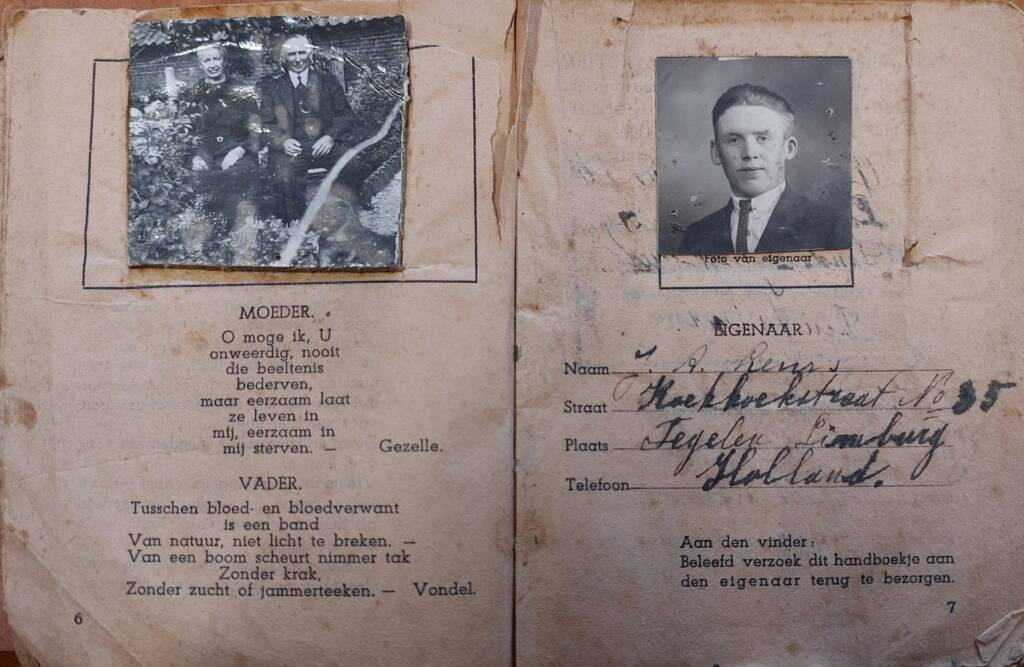 MOEDER.
O moge ik, U
onweerdig, nooit
die beeltenis
bederven,
maar eerzaam laat
ze leven in
mij, eerzaam in
mij sterven. — Gezelle.
VADER.
Tusschen bloed- en bloedverwant
is een band
Van natuur, niet licht te breken. —
Van een boom scheurt nimmer tak
Zonder krak,
Zonder zucht of jammerteeken. — Vondel.
6
Foto van eigenaar
EIGENAAR
Naam J. A. Rens
Straat Koekkoekstraat No 35
Plaats Tegelen Limburg
Telefoon Holland.
Aan den vinder:
Beleefd verzoek dit handboekje aan
den eigenaar terug te bezorgen.
7